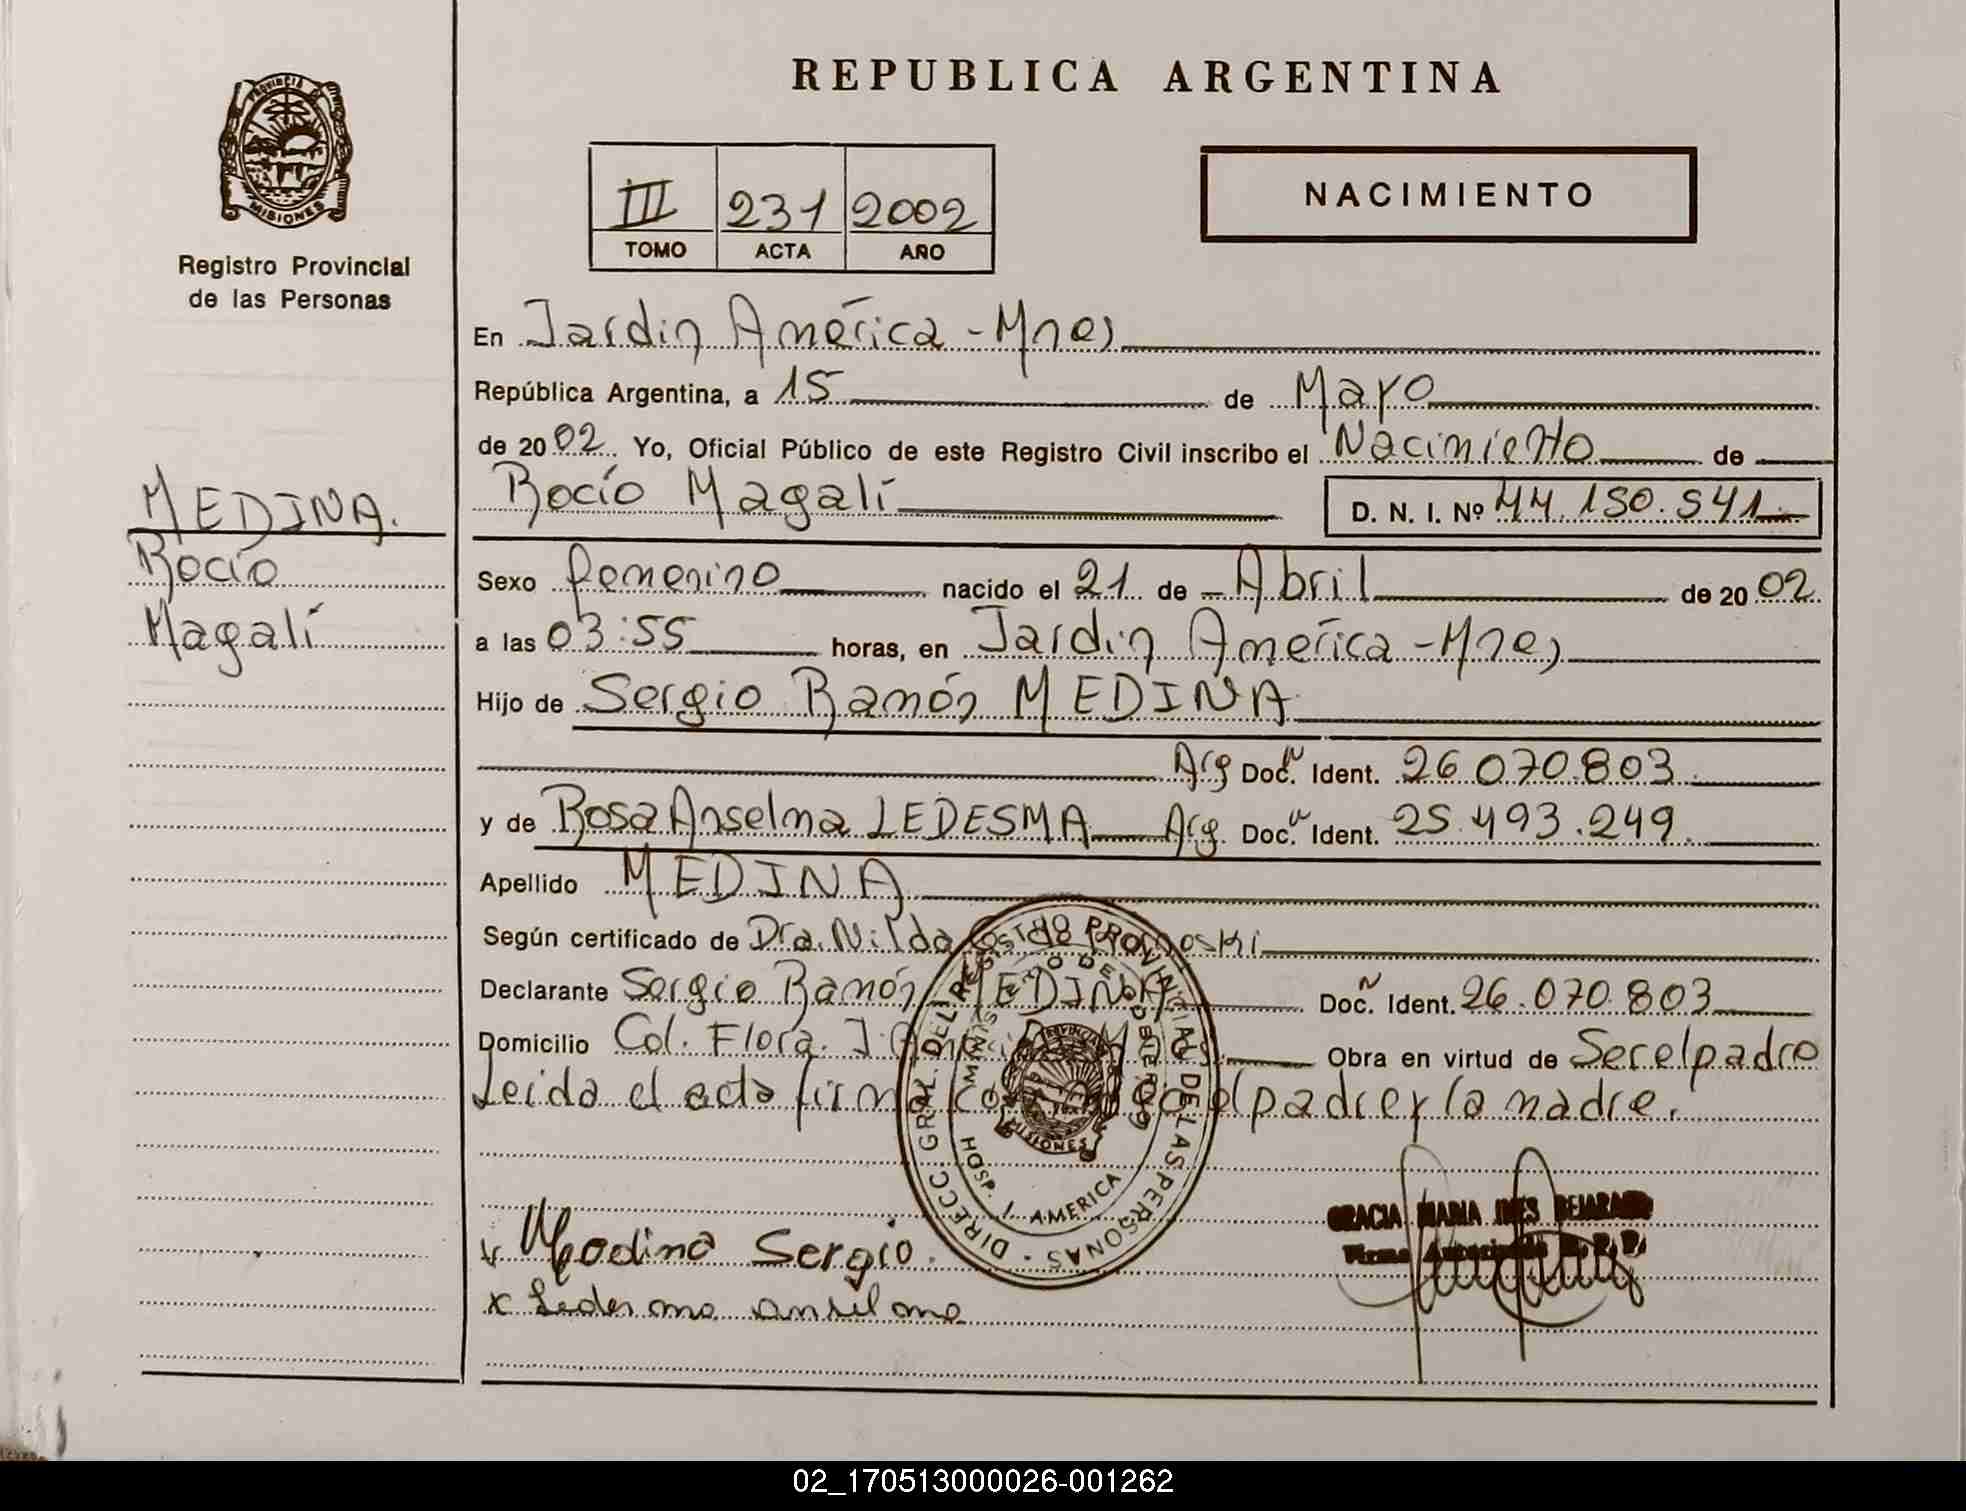 REPUBLICA ARGENTINA
PROVINCIA DE
MISIONES
Registro Provincial
de las Personas
III 231 2002
TOMO ACTA AÑO
NACIMIENTO
En Jardin América - Mnes
República Argentina, a 15 de Mayo
de 2002 Yo, Oficial Público de este Registro Civil inscribo el Nacimiento de
Rocío Magalí D. N. I. Nº 44.150.541
MEDINA.
Rocío
Magalí
Sexo femenino nacido el 21 de Abril de 2002
a las 03:55 horas, en Jardin América - Mnes
Hijo de Sergio Ramón MEDINA
Arg Doc. Ident. 26.070.803
y de Rosa Anselma LEDESMA Arg. Doc. Ident. 25.493.249.
Apellido MEDINA
Según certificado de Dra. Nilda
Declarante Sergio Ramón MEDINA Doc. Ident. 26.070.803
Domicilio Col. Flora. Obra en virtud de Ser el padre
Leida el acta el padre y la madre.
DIRECC. GRAL. DEL REGISTRO PROVINCIAL DE LAS PERSONAS
MINISTERIO DE GOBIERNO
MISIONES
HOSP. J. AMERICA
Medina Sergio.
x Ledesma anselma
GRACIA MARIA INES BEJARANO
Firma Autorizada R. P. P.
02_170513000026-001262